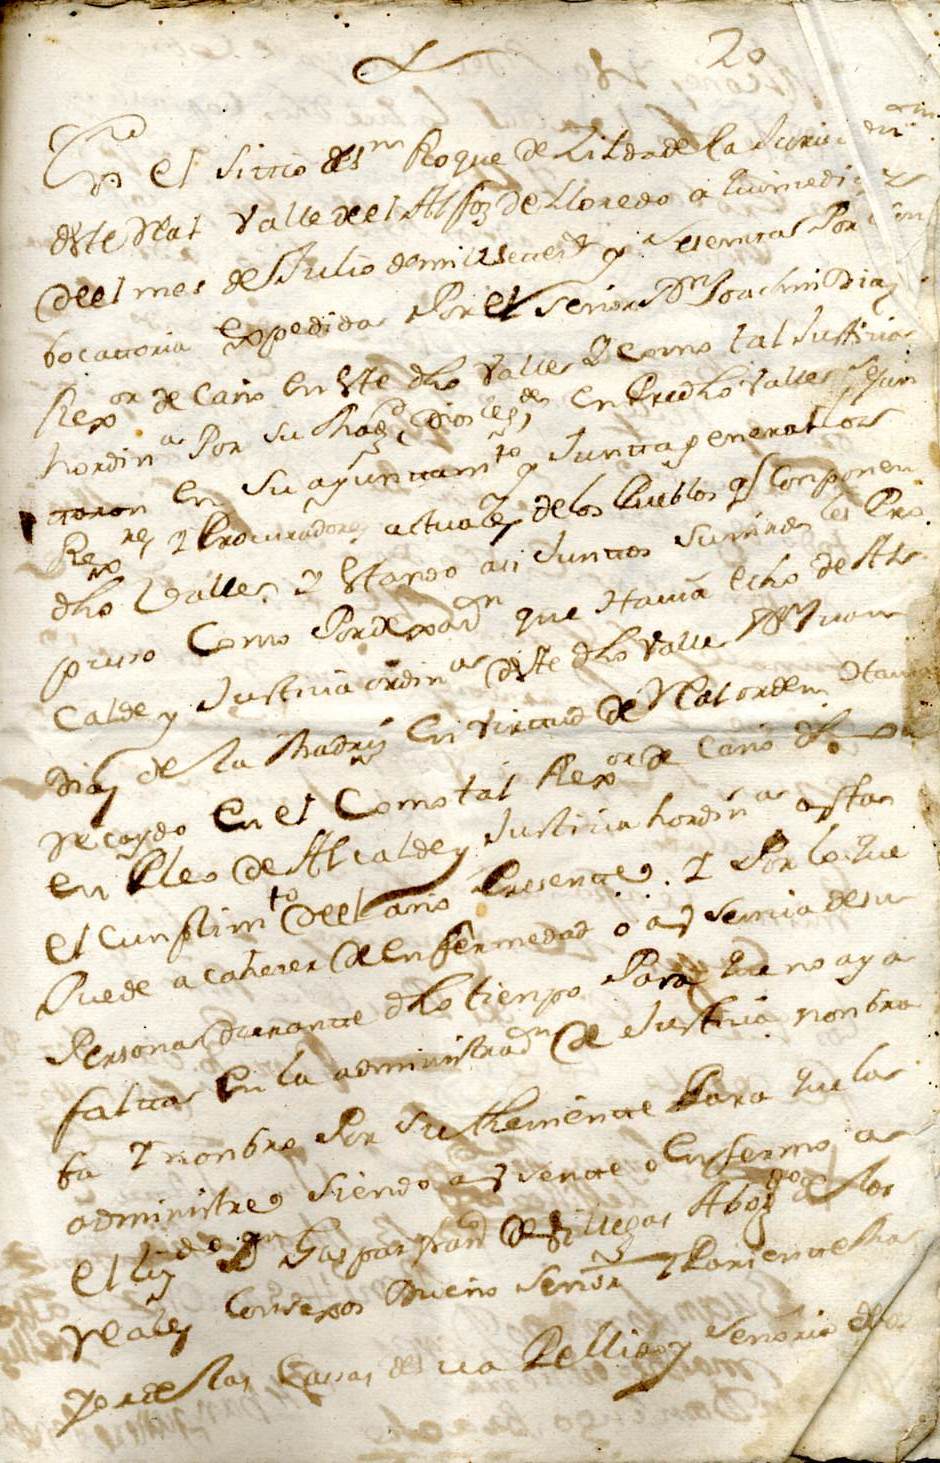 20
En el sittio de Sn Roque de
deste Real Valle de el Alfoz de Lloredo a
de el mes de Julio de mill setects y sesentta Por
bocattoria expedida Por el Señor Dn Joachin Diaz
Rexor de Cano en este dho Valle Y como tal Justicia
hordina Por su Magd, Dios le gde, en Predho Valle, se Jun
ttaron en su ayunttamto y Juntta general los
Rexres y Procuradores actuales de los Pueblos qe Componen
dho Valle, y estando asi Junttos sumrd les Pro
pusso Como Por dexacon que Havia echo de Al
Calde y Justicia ordina deste dho Valle Dn Juan
Diaz de la Madriz en virttud de Real orden Havia
recaydo en el Como tal Rexor de Cano
en Pleo de Alcalde y Justicia hordina asta
el Cunplimto de el año Presentte. Y Por lo que
Puede acaheser de enfermedad o ausencia de su
Persona durantte dho tienpo Para que no aya
faltta en la administracon de Justicia nonbra
ba Y nonbro Por su theniente Para que la
administre siendo ausentte o enfermo a
el lizdo Dn Gaspar de Villegas Abogdo de los
reales Consexos Dueño Señor y Parientte Ma
yor de las Casas de su Apellido y Señorio de